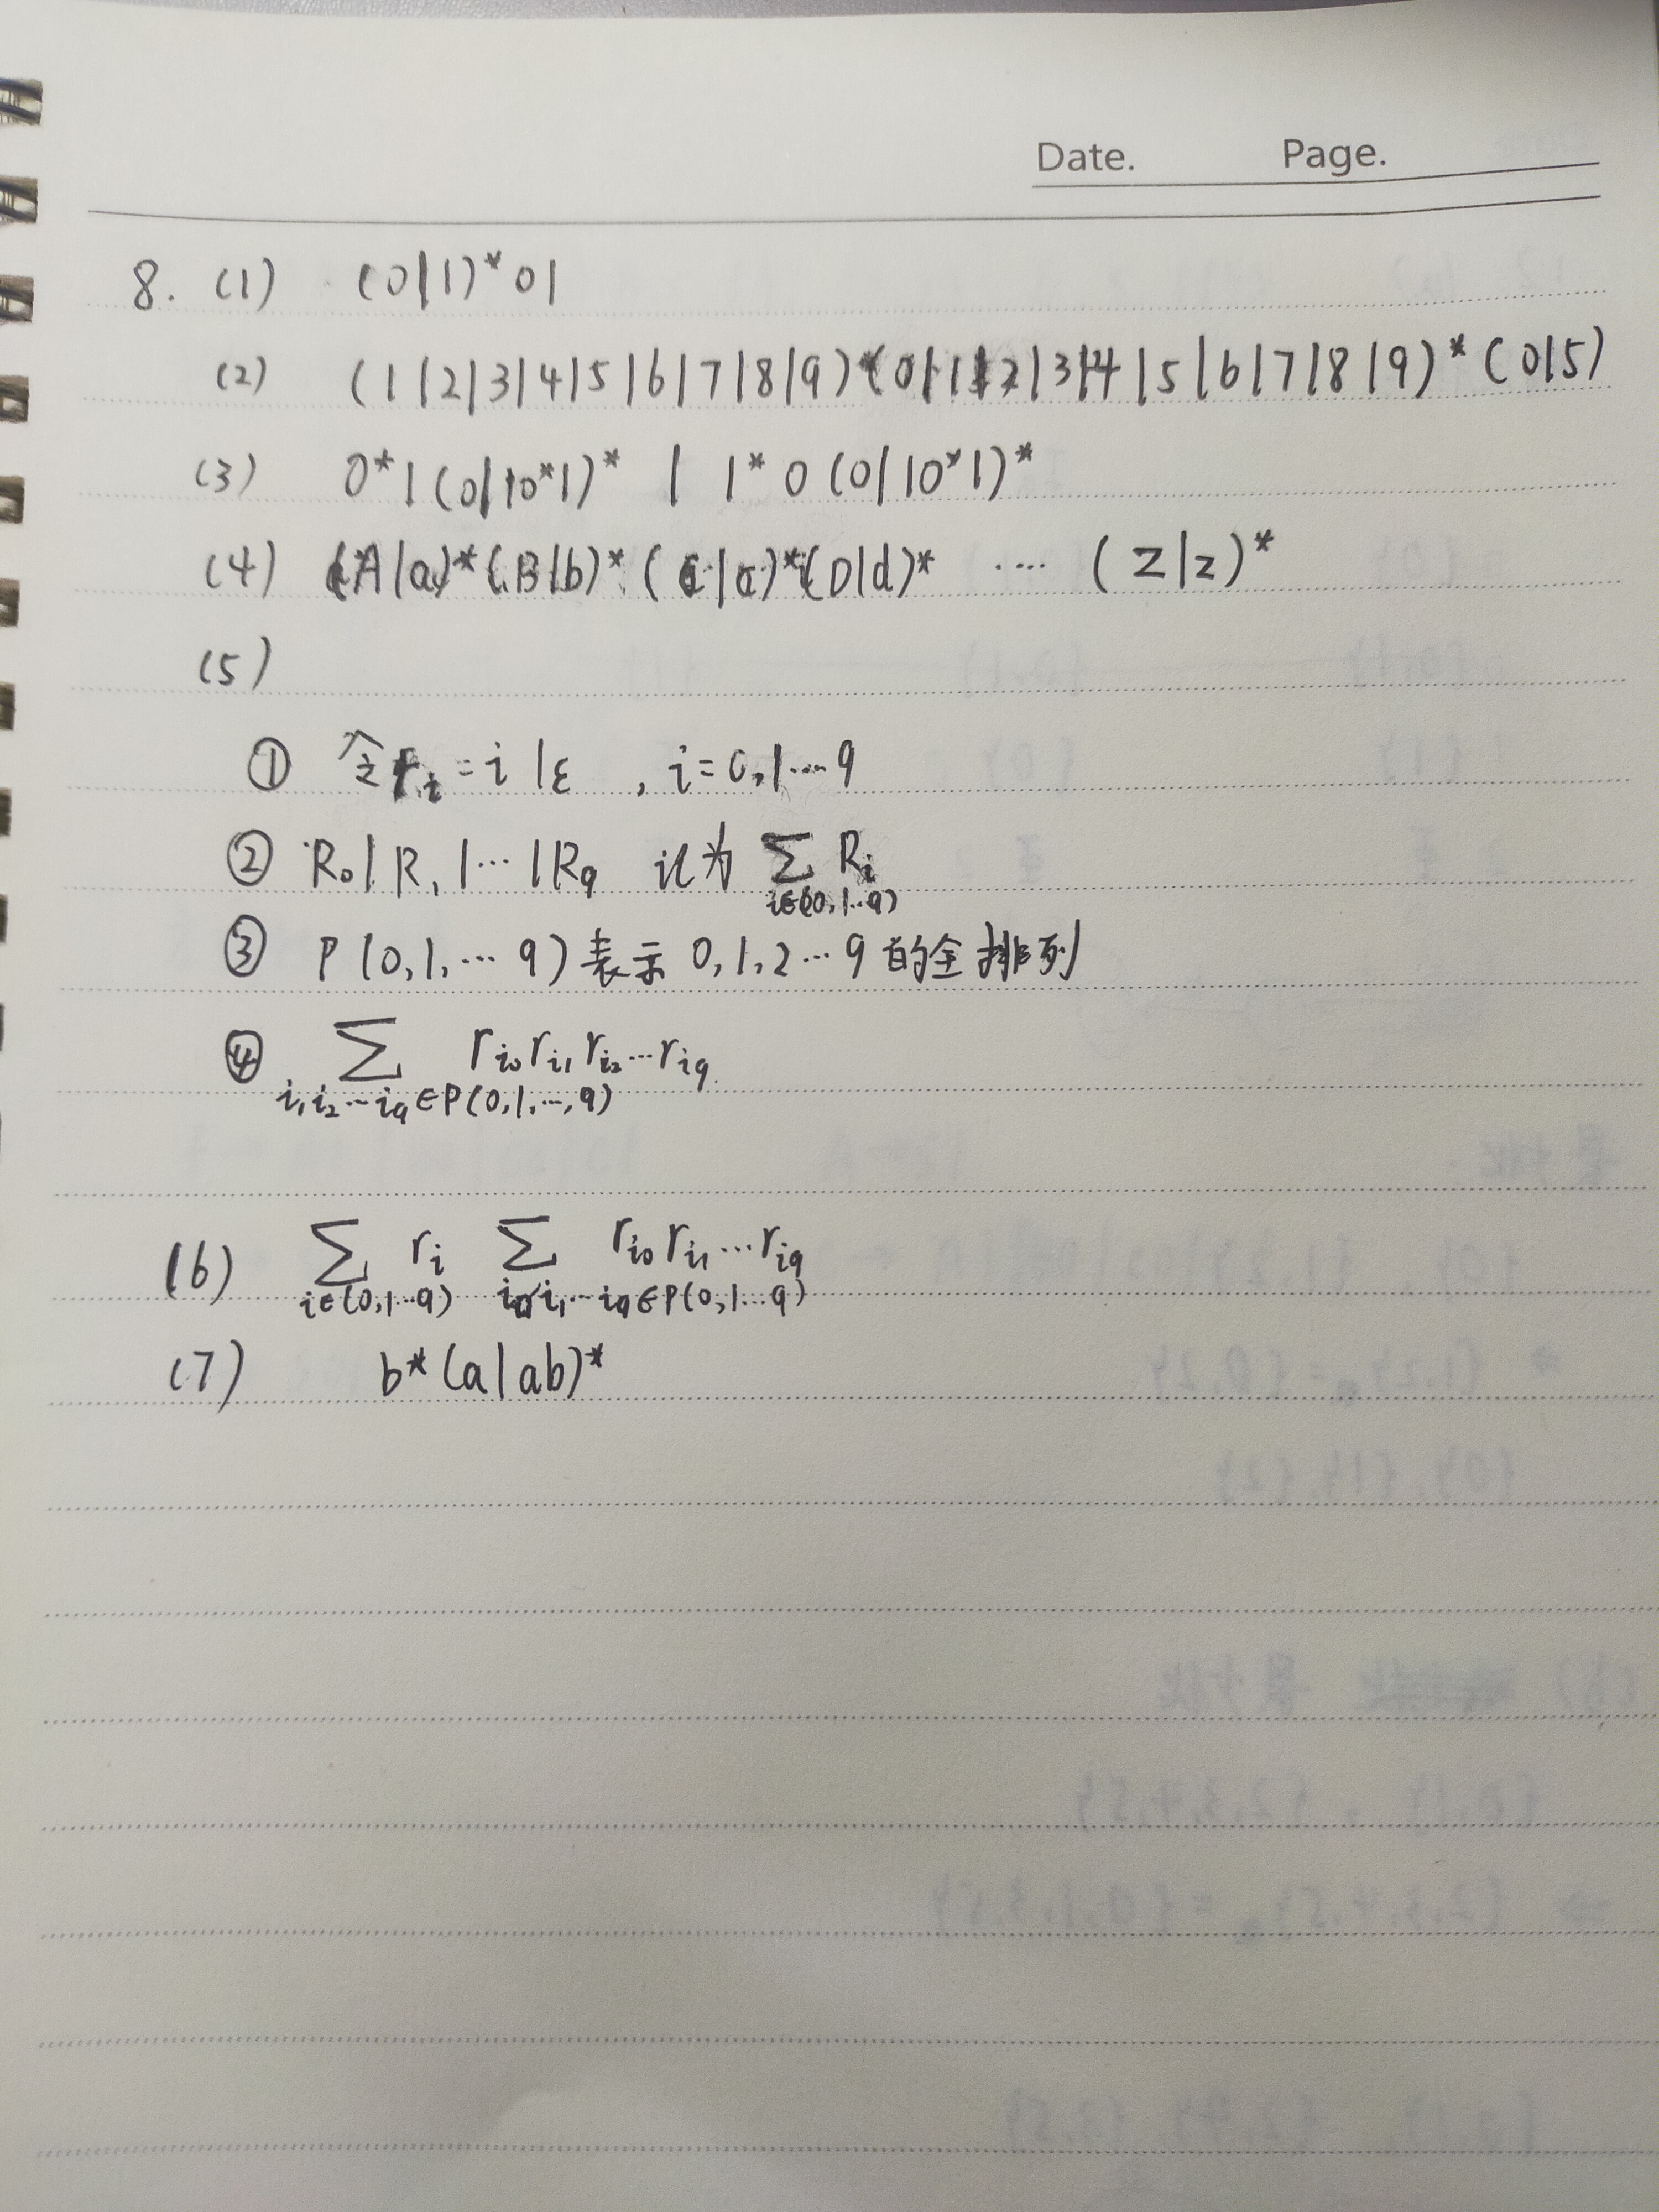 Date. Page.
8. (1) (0|1)*01
(2) (1|2|3|4|5|6|7|8|9)(0|1|2|3|4|5|6|7|8|9)*(0|5)
(3) 0*1(0|10*1)* | 1*0(0|10*1)*
(4) (A|a)*(B|b)*(C|c)*(D|d)* ···· (Z|z)*
(5)
① 令r_i=i|ε , i=0,1····9
② R₀|R₁|···|R₉ 记为 ∑ R_i
i∈(0,1··9)
③ P(0,1,··· 9)表示 0,1,2···9的全排列
④ ∑ r_i₀r_i₁r_i₂···r_i₉
i₁i₂···i₉∈P(0,1,···,9)
(6) ∑ r_i ∑ r_i₀r_i₁···r_i₉
i∈(0,1··9) i₀i₁···i₉∈P(0,1···9)
(7) b*(a|ab)*